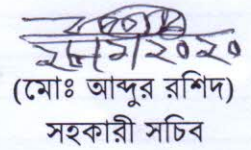 (মোঃ আব্দুর রশিদ)
সহকারী সচিব